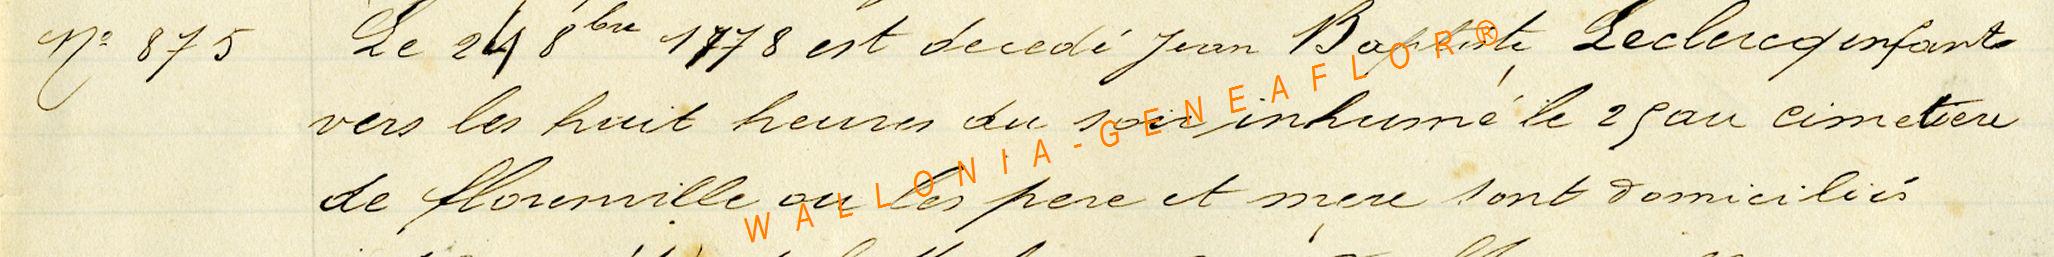 N° 875 Le 24 8bre 1778 est decedé Jean Baptiste Leclercq enfant
vers les huit heures du soir inhumé le 25 au cimetiere
de florenville ou les pere et mere sont domiciliés
WALLONIA-GENEAFLOR®